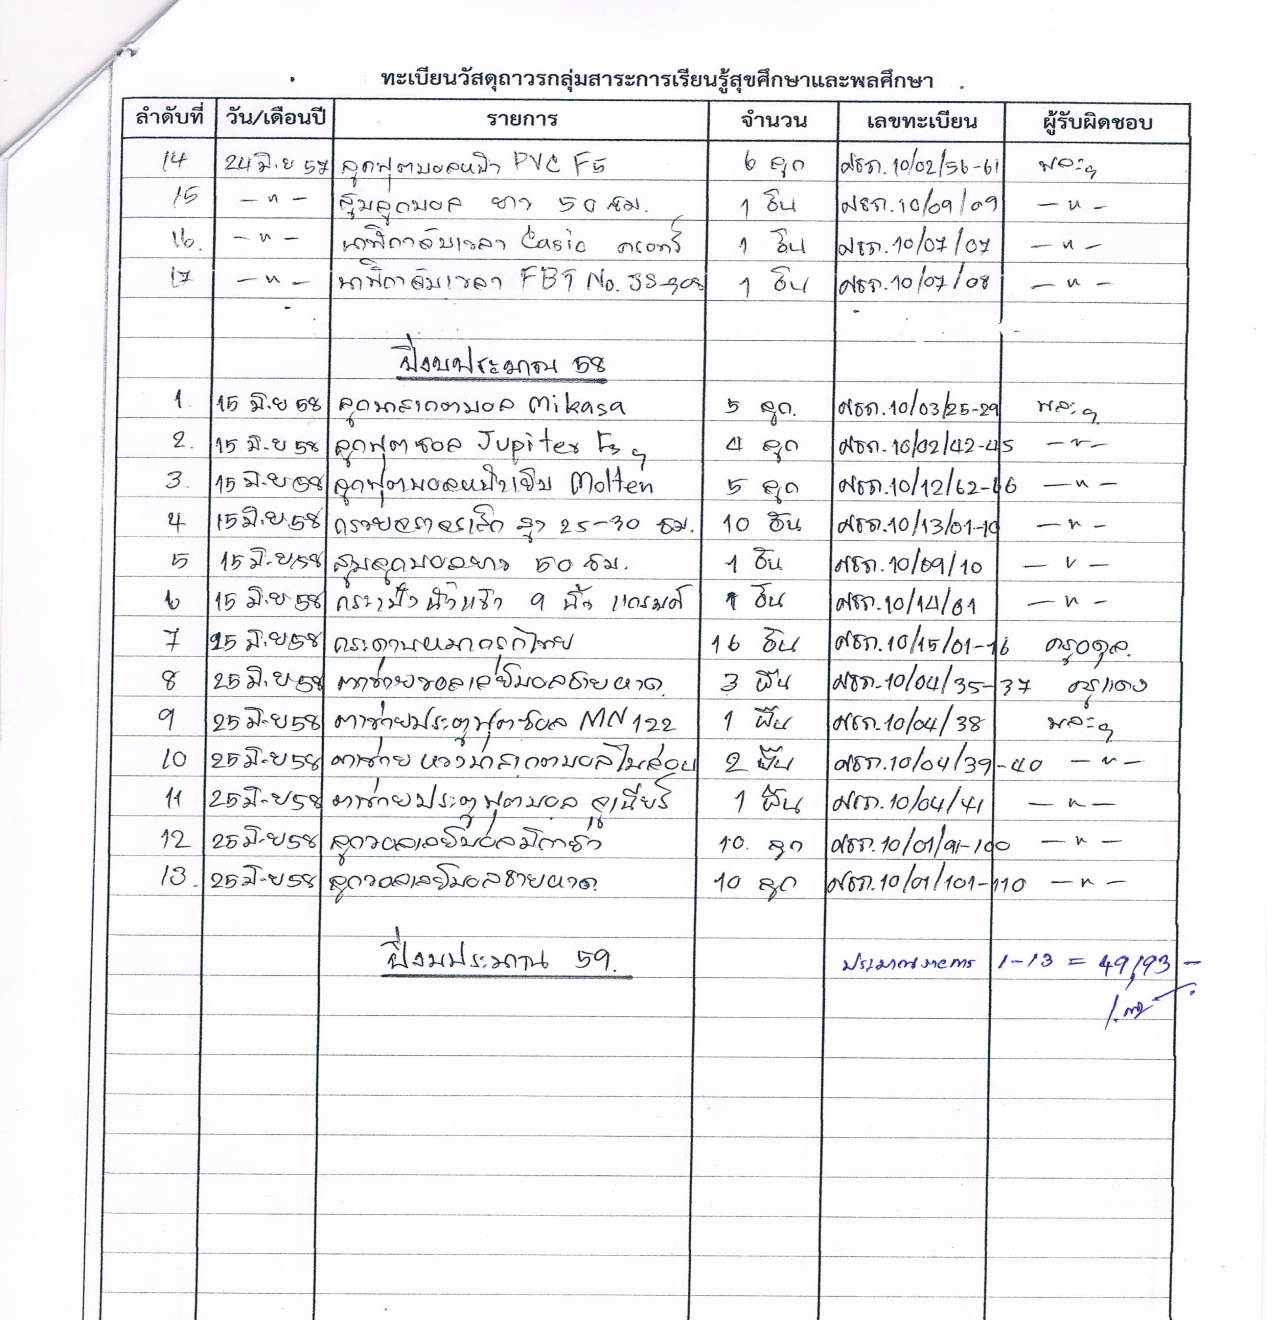 ทะเบียนวัสดุถาวรกลุ่มสาระการเรียนรู้สุขศึกษาและพลศึกษา
ลำดับที่ วัน/เดือนปี รายการ จำนวน เลขทะเบียน ผู้รับผิดชอบ
14 24 มิ.ย 57 ลูกฟุตบอลหนัง PVC F5 6 ลูก ศธภ.10/02/56-61 พละๆ
15 -"- สูบลูกบอล ยาว 50 ซม. 1 อัน ศธภ.10/09/09 -"-
16. -"- นาฬิกาจับเวลา Casio 1 อัน ศธภ.10/07/07 -"-
17 -"- นาฬิกาจับเวลา FBT No. 1 อัน ศธภ.10/07/08 -"-
ปีงบประมาณ 58
1. 15 มิ.ย 58 ลูกบาสเกตบอล Mikasa 5 ลูก. ศธภ.10/03/25-29 พละๆ
2. 15 มิ.ย 58 ลูกฟุตซอล Jupiter 4 ลูก ศธภ.10/02/42-45 -"-
3. 15 มิ.ย 58 ลูกฟุตบอลหนังเย็บ Molten 5 ลูก ศธภ.10/12/62-66 -"-
4 15 มิ.ย 58 กรวยจราจรเล็ก สูง 25-30 ซม. 10 อัน ศธภ.10/13/01-10 -"-
5 15 มิ.ย 58 สูบลูกบอลยาว 50 ซม. 1 อัน ศธภ.10/09/10 -"-
6 15 มิ.ย 58 9 นิ้ว แกรนด์ 1 อัน ศธภ.10/14/01 -"-
7 25 มิ.ย 58 กระดานหมากรุกไทย 16 อัน ศธภ.10/15/01-16
8 25 มิ.ย 58 ตาข่ายวอลเลย์บอลชายหาด 3 ผืน ศธภ.10/04/35-37 ครูแดง
9 25 มิ.ย 58 ตาข่ายประตูฟุตซอล MN 122 1 ผืน ศธภ.10/04/38 พละๆ
10 25 มิ.ย 58 ตาข่าย ห่วงบาสเกตบอลไนล่อน 2 ผืน ศธภ.10/04/39-40 -"-
11 25 มิ.ย 58 ตาข่ายประตูฟุตบอล จูเนียร์ 1 ผืน ศธภ.10/04/41 -"-
12 25 มิ.ย 58 ลูกวอลเลย์บอลมิกาซ่า 10. ลูก ศธภ.10/01/91-100 -"-
13. 25 มิ.ย 58 ลูกวอลเลย์บอลชายหาด 10 ลูก ศธภ.10/01/101-110 -"-
ปีงบประมาณ 59. 1-13 = 49,193 -